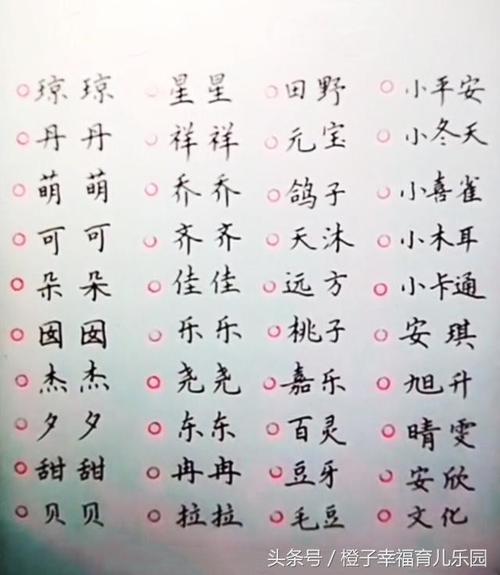 琼琼 星星 田野 小平安
丹丹 祥祥 元宝 小冬天
萌萌 乔乔 鸽子 小喜雀
可可 齐齐 天沐 小木耳
朵朵 佳佳 远方 小卡通
囡囡 乐乐 桃子 安琪
杰杰 尧尧 嘉乐 旭升
夕夕 东东 百灵 晴雯
甜甜 冉冉 豆牙 安欣
贝贝 拉拉 毛豆 文化
头条号／橙子幸福育儿乐园